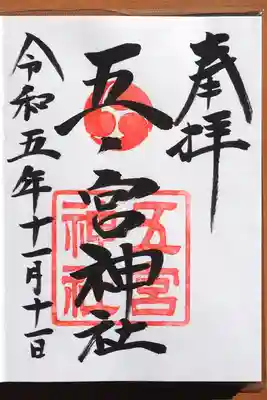 奉拝
五宮神社
五宮
神社
令和五年十一月十一日